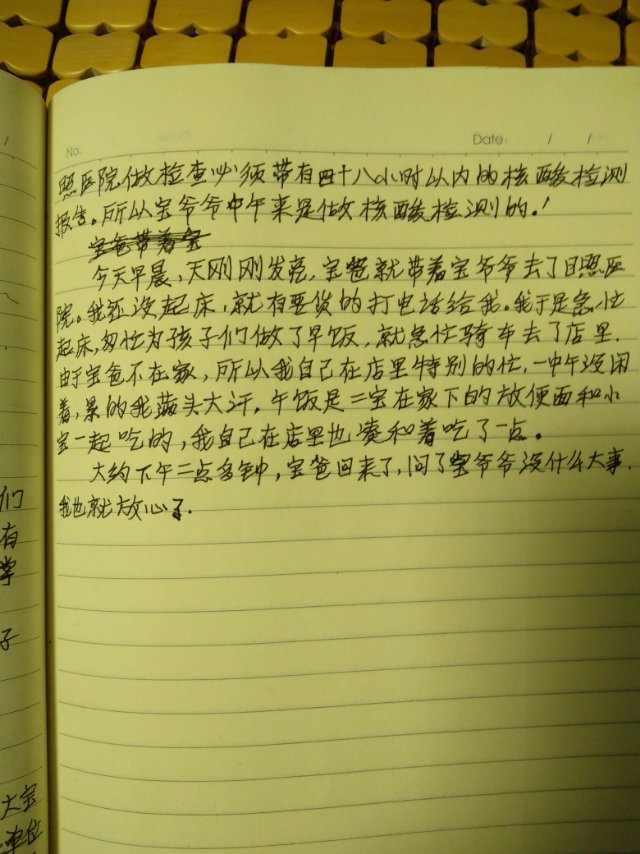 No.
Date: / /
照医院做检查必须带有四十八小时以内的核酸检测
报告。所以宝爷爷中午来是做核酸检测的。!
宝爸带着宝
今天早晨,天刚刚发亮,宝爸就带着宝爷爷去了日照医
院。我还没起床,就有要货的打电话给我。我于是急忙
起床,匆忙为孩子们做了早饭,就急忙骑车去了店里.
由于宝爸不在家,所以我自己在店里特别的忙,一中午没闲
着,累的我满头大汗。午饭是二宝在家下的放便面和小
宝一起吃的,我自己在店里也凑和着吃了一点。
大约下午二点多钟,宝爸回来了,问了宝爷爷没什么大事.
我也就放心了.
们
有
掌
子
大宝
单位